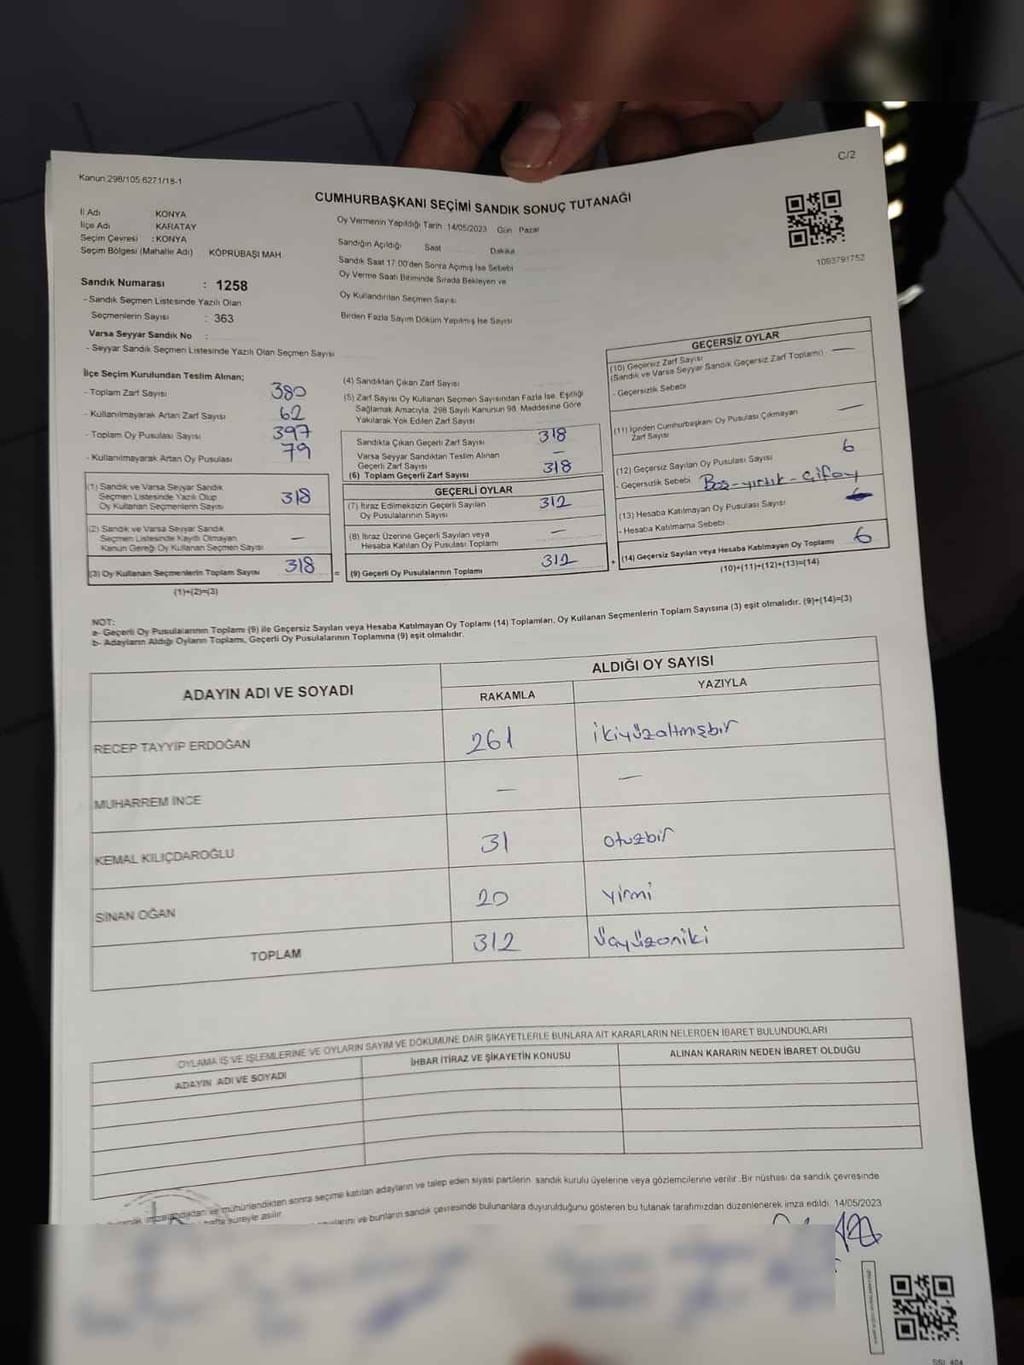 C/2
Kanun:298/105.6271/18-1
CUMHURBAŞKANI SEÇİMİ SANDIK SONUÇ TUTANAĞI
İl Adı KONYA
İlçe Adı KARATAY
Seçim Çevresi : KONYA
Seçim Bölgesi (Mahalle Adı) KÖPRÜBAŞI MAH.
Oy Vermenin Yapıldığı Tarih 14/05/2023 Gün Pazar
Sandığın Açıldığı Saat Dakika
Sandık Saat 17:00'den Sonra Açımış İse Sebebi
Oy Verme Saati Bitiminde Sırada Bekleyen ve
Oy Kullandırılan Seçmen Sayısı
Birden Fazla Sayım Döküm Yapılmış İse Sayısı
1093791752
Sandık Numarası : 1258
- Sandık Seçmen Listesinde Yazılı Olan
Seçmenlerin Sayısı : 363
Varsa Seyyar Sandık No :
- Seyyar Sandık Seçmen Listesinde Yazılı Olan Seçmen Sayısı
İlçe Seçim Kurulundan Teslim Alınan;
- Toplam Zarf Sayısı 380
- Kullanılmayarak Artan Zarf Sayısı 62
- Toplam Oy Pusulası Sayısı 397
- Kullanılmayarak Artan Oy Pusulası 79
(1) Sandık ve Varsa Seyyar Sandık
Seçmen Listesinde Yazılı Olup
Oy Kullanan Seçmenlerin Sayısı 318
(2) Sandık ve Varsa Seyyar Sandık
Seçmen Listesinde Kayıtlı Olmayan
Kanun Gereği Oy Kullanan Seçmen Sayısı —
(3) Oy Kullanan Seçmenlerin Toplam Sayısı 318
(1)+(2)=(3)
(4) Sandıktan Çıkan Zarf Sayısı
(5) Zarf Sayısı Oy Kullanan Seçmen Sayısından Fazla İse, Eşitliği
Sağlamak Amacıyla, 298 Sayılı Kanunun 98. Maddesine Göre
Yakılarak Yok Edilen Zarf Sayısı
Sandıkta Çıkan Geçerli Zarf Sayısı 318
Varsa Seyyar Sandıktan Teslim Alınan
Geçerli Zarf Sayısı —
(6) Toplam Geçerli Zarf Sayısı 318
GEÇERLİ OYLAR
(7) İtiraz Edilmeksizin Geçerli Sayılan
Oy Pusulalarının Sayısı 312
(8) İtiraz Üzerine Geçerli Sayılan veya
Hesaba Katılan Oy Pusulası Toplamı —
= (9) Geçerli Oy Pusulalarının Toplamı 312
GEÇERSİZ OYLAR
(10) Geçersiz Zarf Sayısı
(Sandık ve Varsa Seyyar Sandık Geçersiz Zarf Toplamı) —
- Geçersizlik Sebebi
(11) İçinden Cumhurbaşkanı Oy Pusulası Çıkmayan
Zarf Sayısı —
(12) Geçersiz Sayılan Oy Pusulası Sayısı 6
- Geçersizlik Sebebi Boş-yırtık-çiftoy
(13) Hesaba Katılmayan Oy Pusulası Sayısı
- Hesaba Katılmama Sebebi
+ (14) Geçersiz Sayılan veya Hesaba Katılmayan Oy Toplamı 6
(10)+(11)+(12)+(13)=(14)
NOT:
a- Geçerli Oy Pusulalarının Toplamı (9) ile Geçersiz Sayılan veya Hesaba Katılmayan Oy Toplamı (14) Toplamları, Oy Kullanan Seçmenlerin Toplam Sayısına (3) eşit olmalıdır. (9)+(14)=(3)
b- Adayların Aldığı Oyların Toplamı, Geçerli Oy Pusulalarının Toplamına (9) eşit olmalıdır.
ADAYIN ADI VE SOYADI
ALDIĞI OY SAYISI
RAKAMLA YAZIYLA
RECEP TAYYİP ERDOĞAN 261 ikiyüzaltmışbir
MUHARREM İNCE — —
KEMAL KILIÇDAROĞLU 31 otuzbir
SİNAN OĞAN 20 yirmi
TOPLAM 312 üçyüzoniki
OYLAMA İŞ VE İŞLEMLERİNE VE OYLARIN SAYIM VE DÖKÜMÜNE DAİR ŞİKAYETLERLE BUNLARA AİT KARARLARIN NELERDEN İBARET BULUNDUKLARI
ADAYIN ADI VE SOYADI İHBAR İTİRAZ VE ŞİKAYETİN KONUSU ALINAN KARARIN NEDEN İBARET OLDUĞU
mühürlendikten sonra seçime katılan adayların ve talep eden siyasi partilerin sandık kurulu üyelerine veya gözlemcilerine verilir. Bir nüshası da sandık çevresinde
hafta süreyle asılır.
ve bunların sandık çevresinde bulunanlara duyurulduğunu gösteren bu tutanak tarafımızdan düzenlenerek imza edildi. 14/05/2023